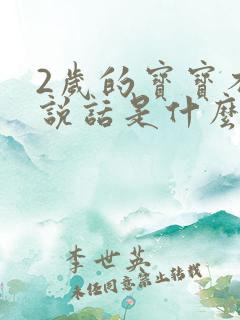 2歲的寶寶不
說話是什麼
李世英
未經同意禁止轉載